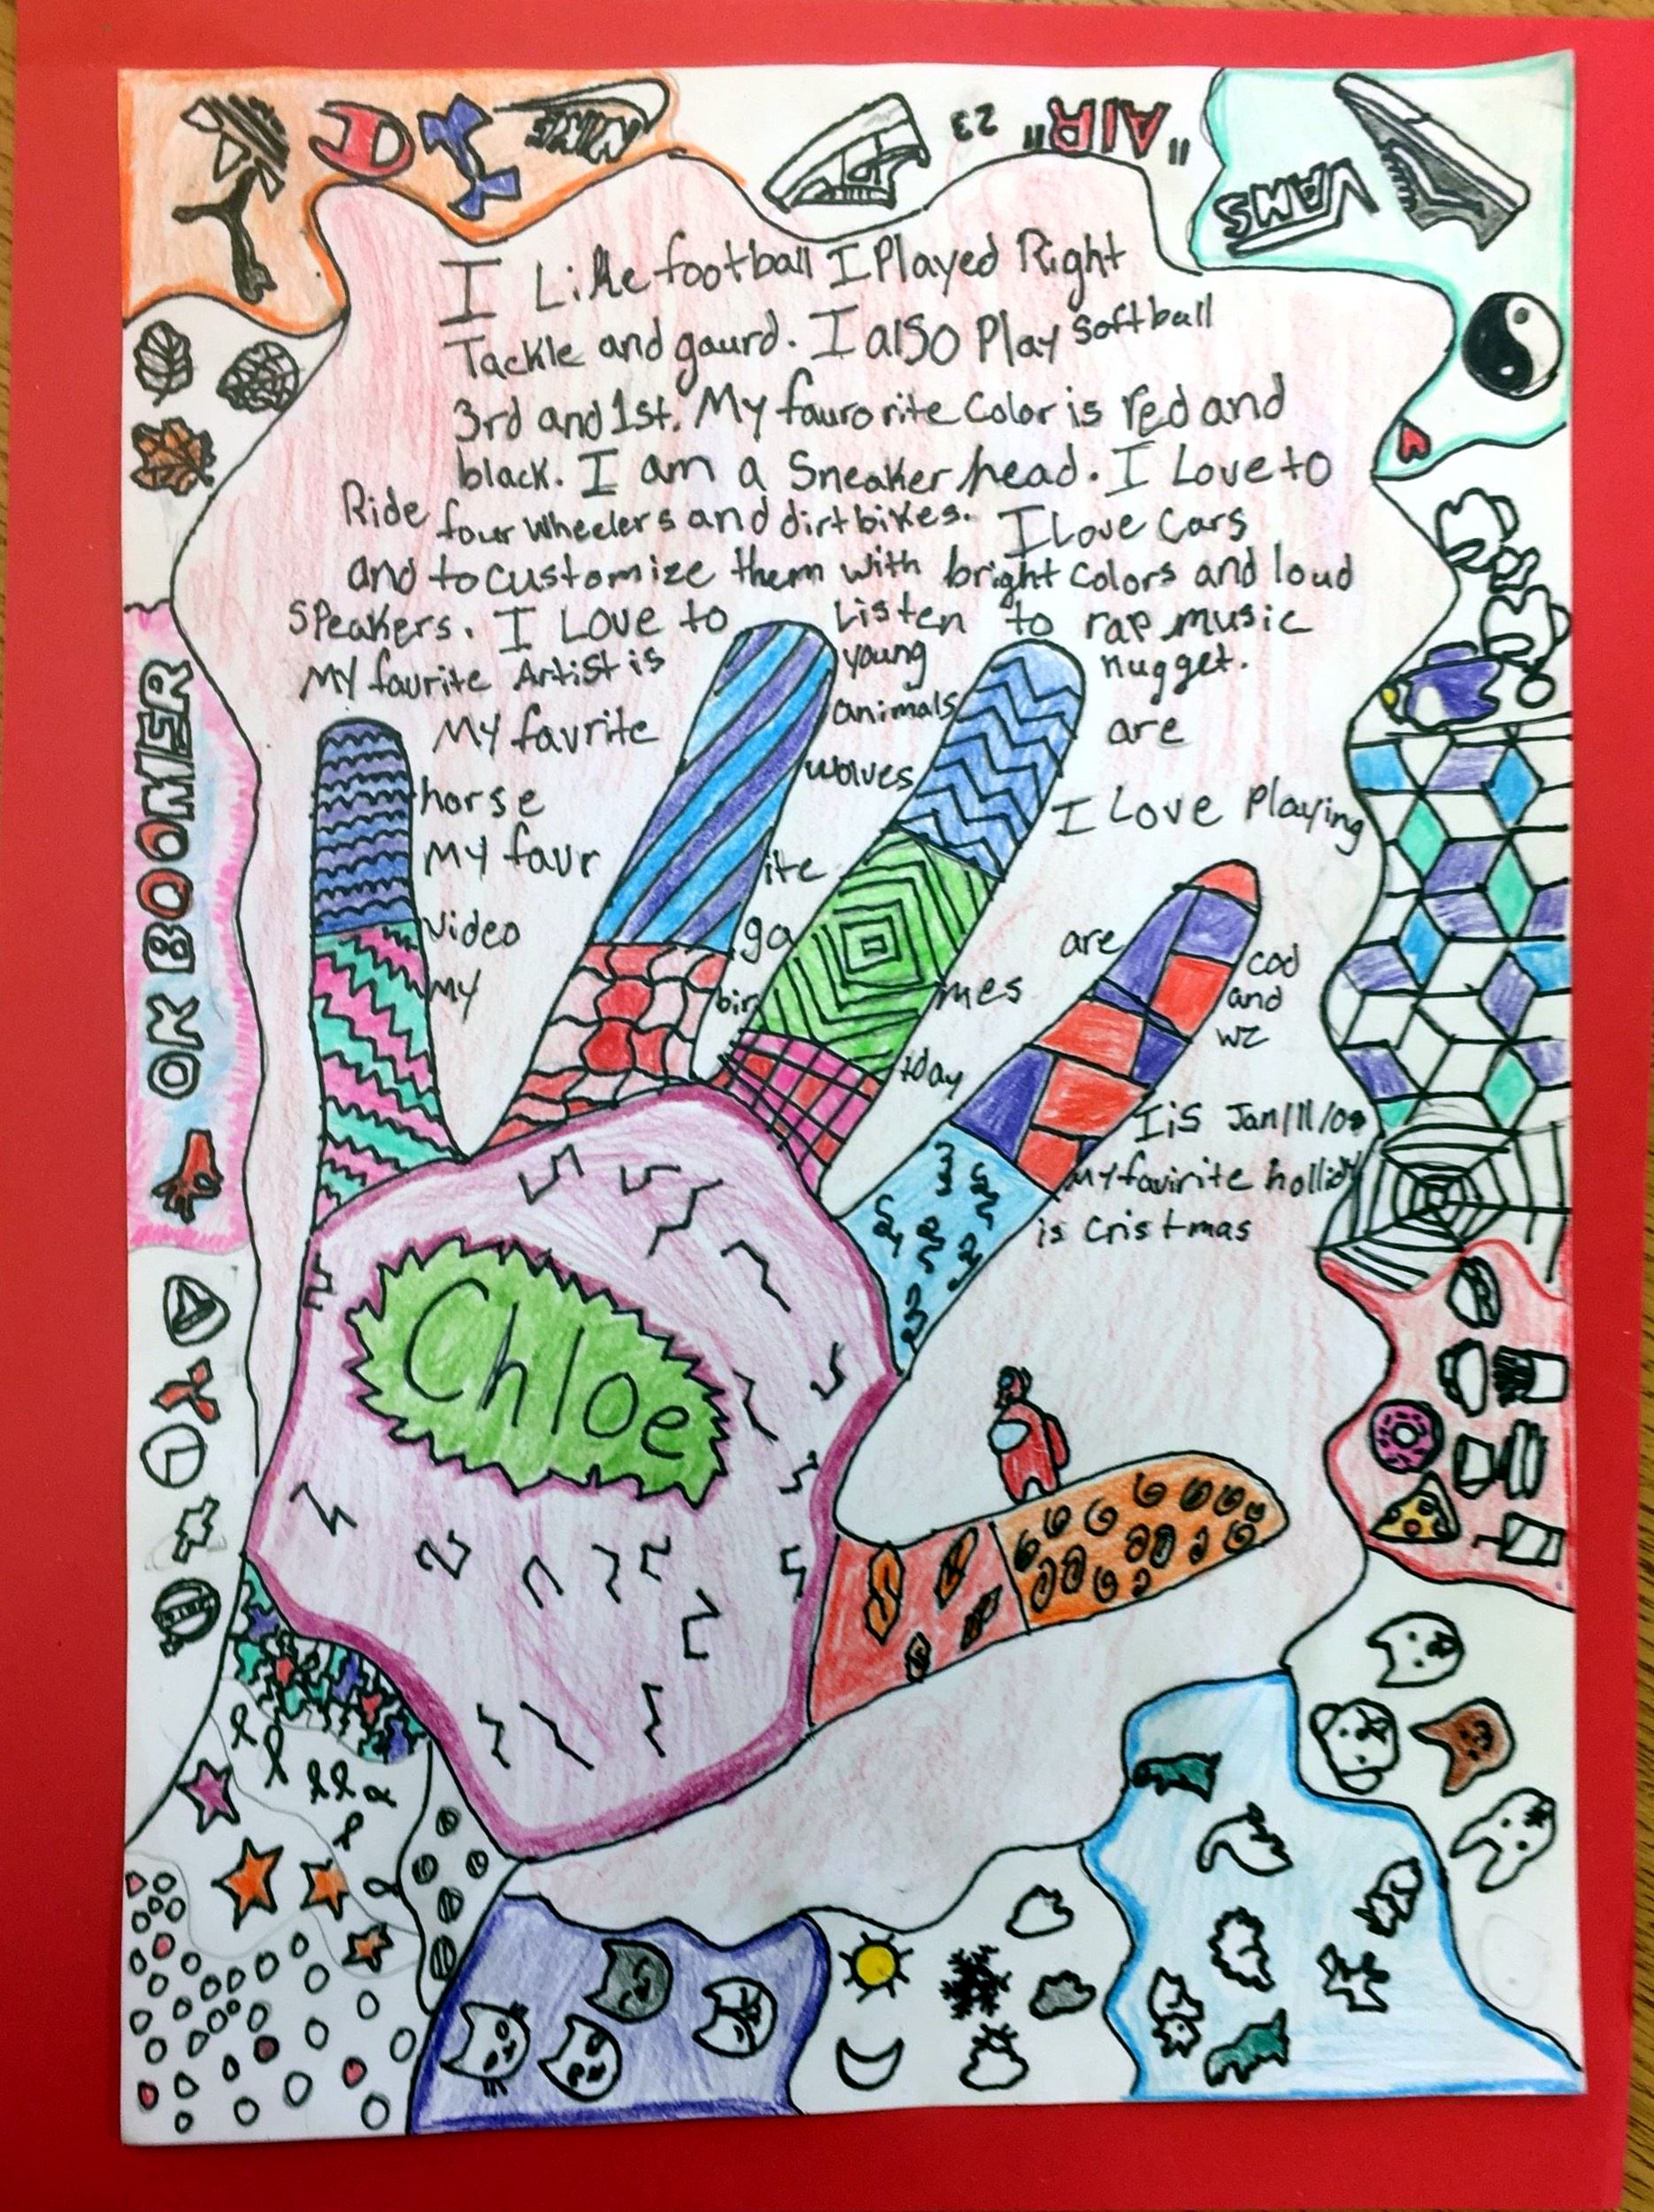 NIKE
23 "AIR"
VANS
I Like football I Played Right
Tackle and gaurd. I also Play softball
3rd and 1st. My faurorite Color is red and
black. I am a Sneaker head. I Love to
Ride four wheelers and dirtbikes. I Love Cars
and to customize them with bright Colors and loud
SPeakers. I Love to Listen to rap music
My faurite Artist is young nugget.
My favrite animals are
horse wolves I Love Playing
My faur ite
video ga mes are cod
and
My bir tday wz
I is Jan/11/
My favirite hollidy
is Cristmas
OK BOOMER
Chloe